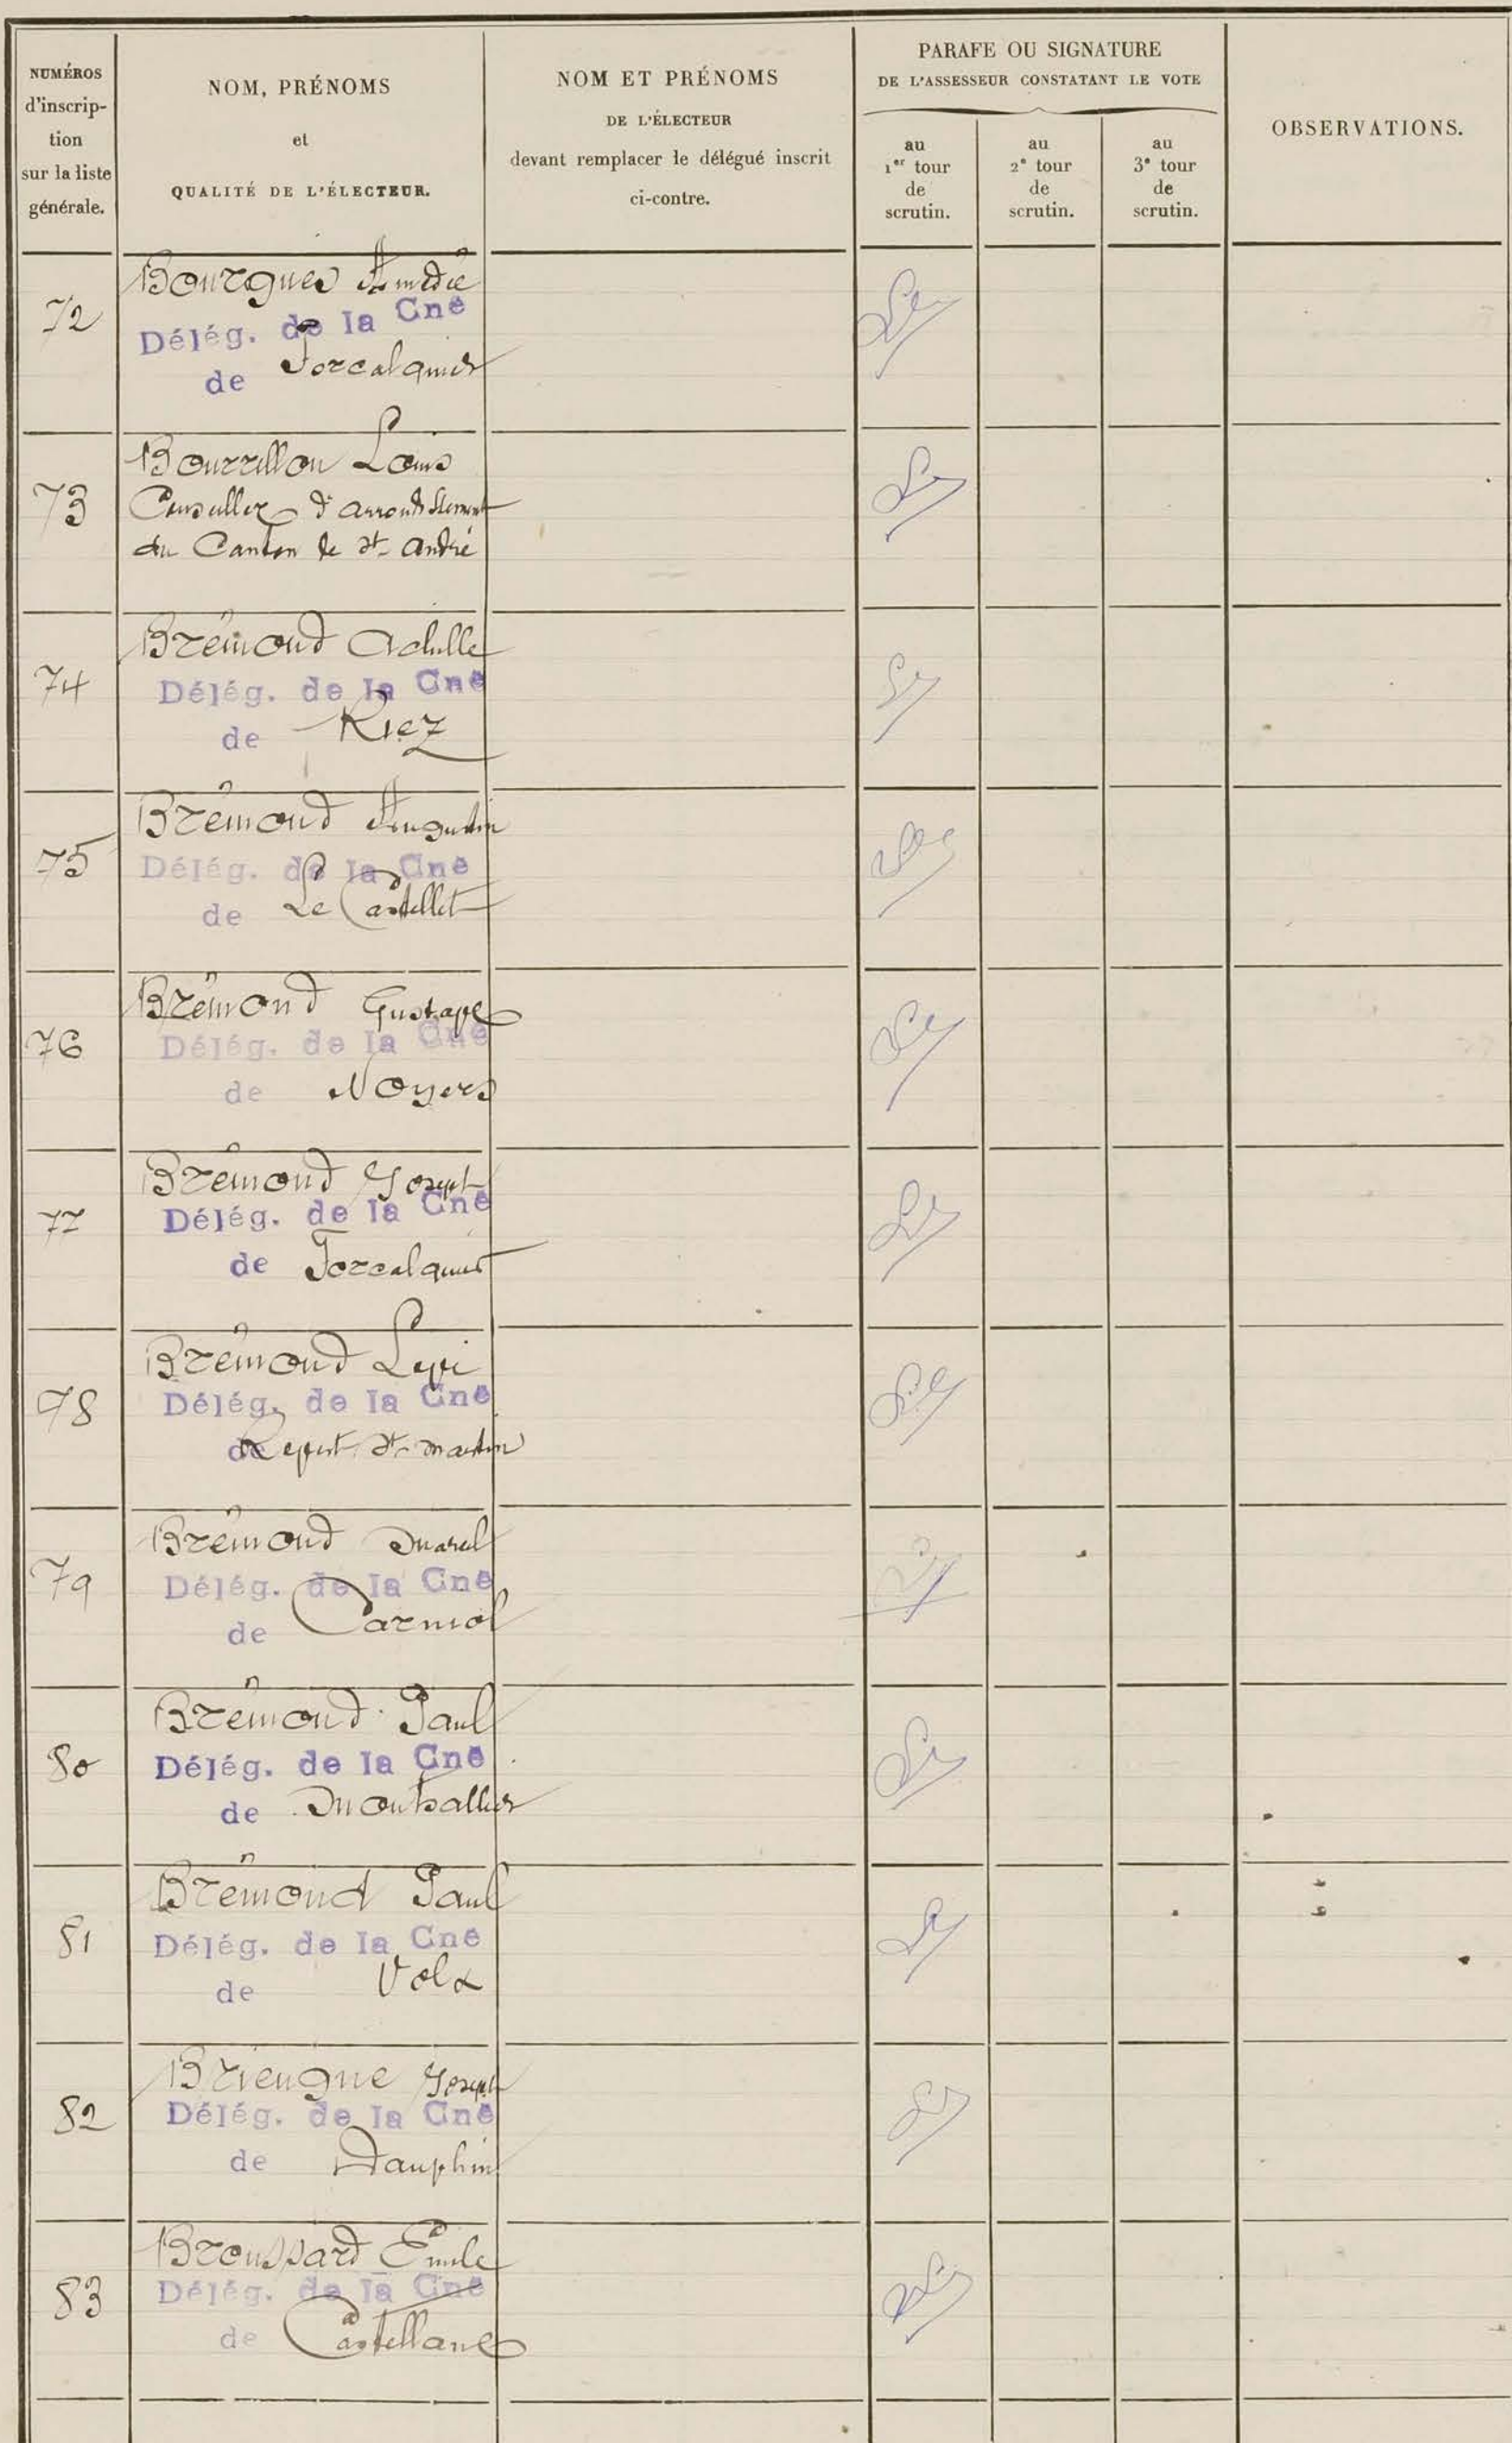 NUMÉROS
d'inscrip-
tion
sur la liste
générale.
NOM, PRÉNOMS
et
QUALITÉ DE L'ÉLECTEUR.
NOM ET PRÉNOMS
DE L'ÉLECTEUR
devant remplacer le délégué inscrit
ci-contre.
PARAFE OU SIGNATURE
DE L'ASSESSEUR CONSTATANT LE VOTE
au
1er tour
de
scrutin.
au
2e tour
de
scrutin.
au
3e tour
de
scrutin.
OBSERVATIONS.
72
Bourgues Amédée
Délég. de la Cne
de Forcalquier
73
Bourrillon Louis
Conseiller d'arrondissement
du Canton de St André
74
Brémond Achille
Délég. de la Cne
de Riez
75
Brémond Augustin
Délég. de la Cne
de Le Castellet
76
Brémond Gustave
Délég. de la Cne
de Noyers
77
Brémond Joseph
Délég. de la Cne
de Forcalquier
78
Brémond Lévi
Délég. de la Cne
de Revest St Martin
79
Brémond Marcel
Délég. de la Cne
de Carniol
80
Brémond Paul
Délég. de la Cne
de Montsallier
81
Brémond Paul
Délég. de la Cne
de Volx
82
Briengne Joseph
Délég. de la Cne
de Dauphin
83
Broussard Emile
Délég. de la Cne
de Castellane